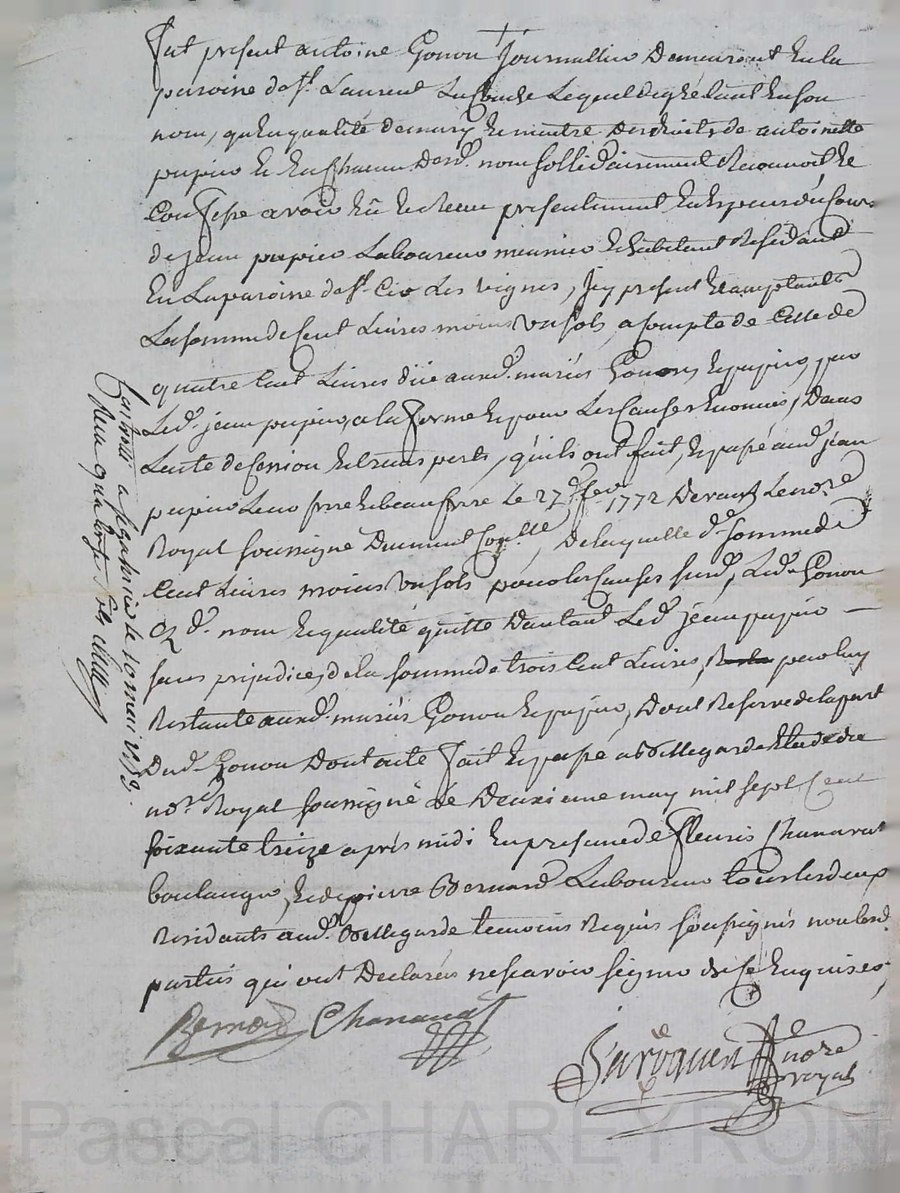 Fut present antoine Gonon journallier Demeurant En la
paroine de St. Laurent La Conche Lequel de gré tant En son
nom, qu'En qualité de mary Et maitre Des droits de antoinette
pupier Et En Chacun Desd. nom sollidairement Reconnoit Et
Confesse avoir Eû Et Receu presentement En Especes du Cours
de jean pupier Laboureur meunier Et habitant Residant
En La paroine de St. Cir Les vignes, jcy present Et acceptant
La somme de Cent Livres moins Un sols, a Compte de Celle de
quatre Cent Livres düe auxd. mariés Gonon Et pupier, par
Led. jean pupier, a la forme Et pour Les Causes Enoncés, Dans
L'acte de Cession Et transports, qu'ils ont fait, Et passé aud. jean
pupier Leur frere Et beau frere Le 27e fev. 1772 Devant Le nore
Royal soussigné Dument Conllé, De laquelle de. somme de
Cent Livres moins Un sols pour les Causes susd., Led. Gonon
Ez d. nom Et qualité quitte D'autant Led. jean pupier —
sans prejudice, de la somme de trois Cent Livres, par luy
Restante auxd. mariés Gonon Et pupier, Dont Reserve de la part
Dud. Gonon Dont acte fait Et passé a Bellegarde Etude du
nore Royal soussigné Le Deuxieme may mil sept Cent
soixante treize après midi En presence de fleuris Chanavat
boulanger, Et de pierre Bernard Laboureur tous les deux
Residants aud. Bellegarde temoins Requis soussignés non lesd.
parties qui ont Declarées ne scavoir signer de Ce Enquises,
Bernard Chanavat
nore
royal